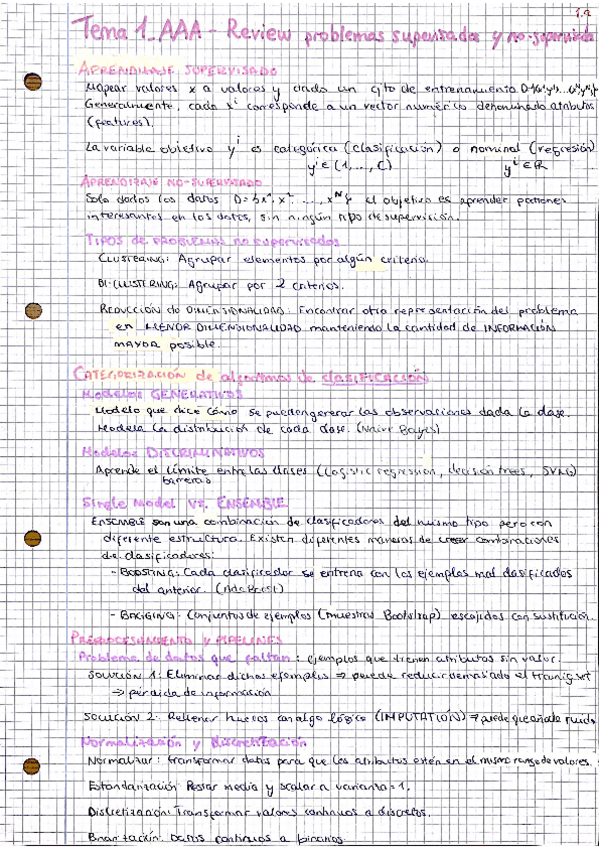 1.1
Tema 1_AAA - Review problemas supervisados y no-supervisados
APRENDIZAJE SUPERVISADO
Mapear valores x a valores y dado un cjto de entrenamiento
Generalmente, cada xⁱ corresponde a un vector numérico denominado atributos
(features).
La variable objetivo yⁱ es categórica (clasificación) o nominal (regresión)
yⁱ ∈ (1, ..., C) yⁱ ∈ R
APRENDIZAJE NO-SUPERVISADO
Solo dados los datos D={x¹, x², ..., xᴺ} el objetivo es aprender patrones
interesantes en los datos, sin ningún tipo de supervisión.
TIPOS de PROBLEMAS no supervisados
CLUSTERING: Agrupar elementos por algún criterio.
BI-CLUSTERING: Agrupar por 2 criterios.
REDUCCIÓN de DIMENSIONALIDAD: Encontrar otra representación del problema
en MENOR DIMENSIONALIDAD manteniendo la cantidad de INFORMACIÓN
MAYOR posible.
CATEGORIZACIÓN de algoritmos de CLASIFICACIÓN
Modelos GENERATIVOS
Modelo que dice cómo se pueden generar las observaciones dada la clase.
Modela la distribución de cada clase. (Naive Bayes)
Modelos DISCRIMINATIVOS
Aprende el límite entre las clases (Logistic regression, decision trees, SVM)
barreras
Single Model vs. ENSEMBLE
ENSEMBLE son una combinación de clasificadores del mismo tipo pero con
diferente estructura. Existen diferentes maneras de crear combinaciones
de clasificadores:
- BOOSTING: Cada clasificador se entrena con los ejemplos mal clasificados
del anterior. (AdaBoost)
- BAGGING: Conjuntos de ejemplos (muestras Bootstrap) escogidos con sustitución.
PREPROCESAMIENTO y PIPELINES
Problema de datos que faltan: ejemplos que tienen atributos sin valor.
SOLUCIÓN 1: Eliminar dichos ejemplos ⇒ puede reducir demasiado el training set
⇒ pérdida de información
SOLUCIÓN 2: Rellenar huecos con algo lógico (IMPUTATIÓN) ⇒ puede que añada ruido
Normalización y Discretización
Normalizar: transformar datos para que los atributos estén en el mismo rango de valores.
Estandarización: Restar media y scalar a varianza = 1.
Discretización: Transformar valores continuos a discretos.
Binarización: Datos continuos a binarios.